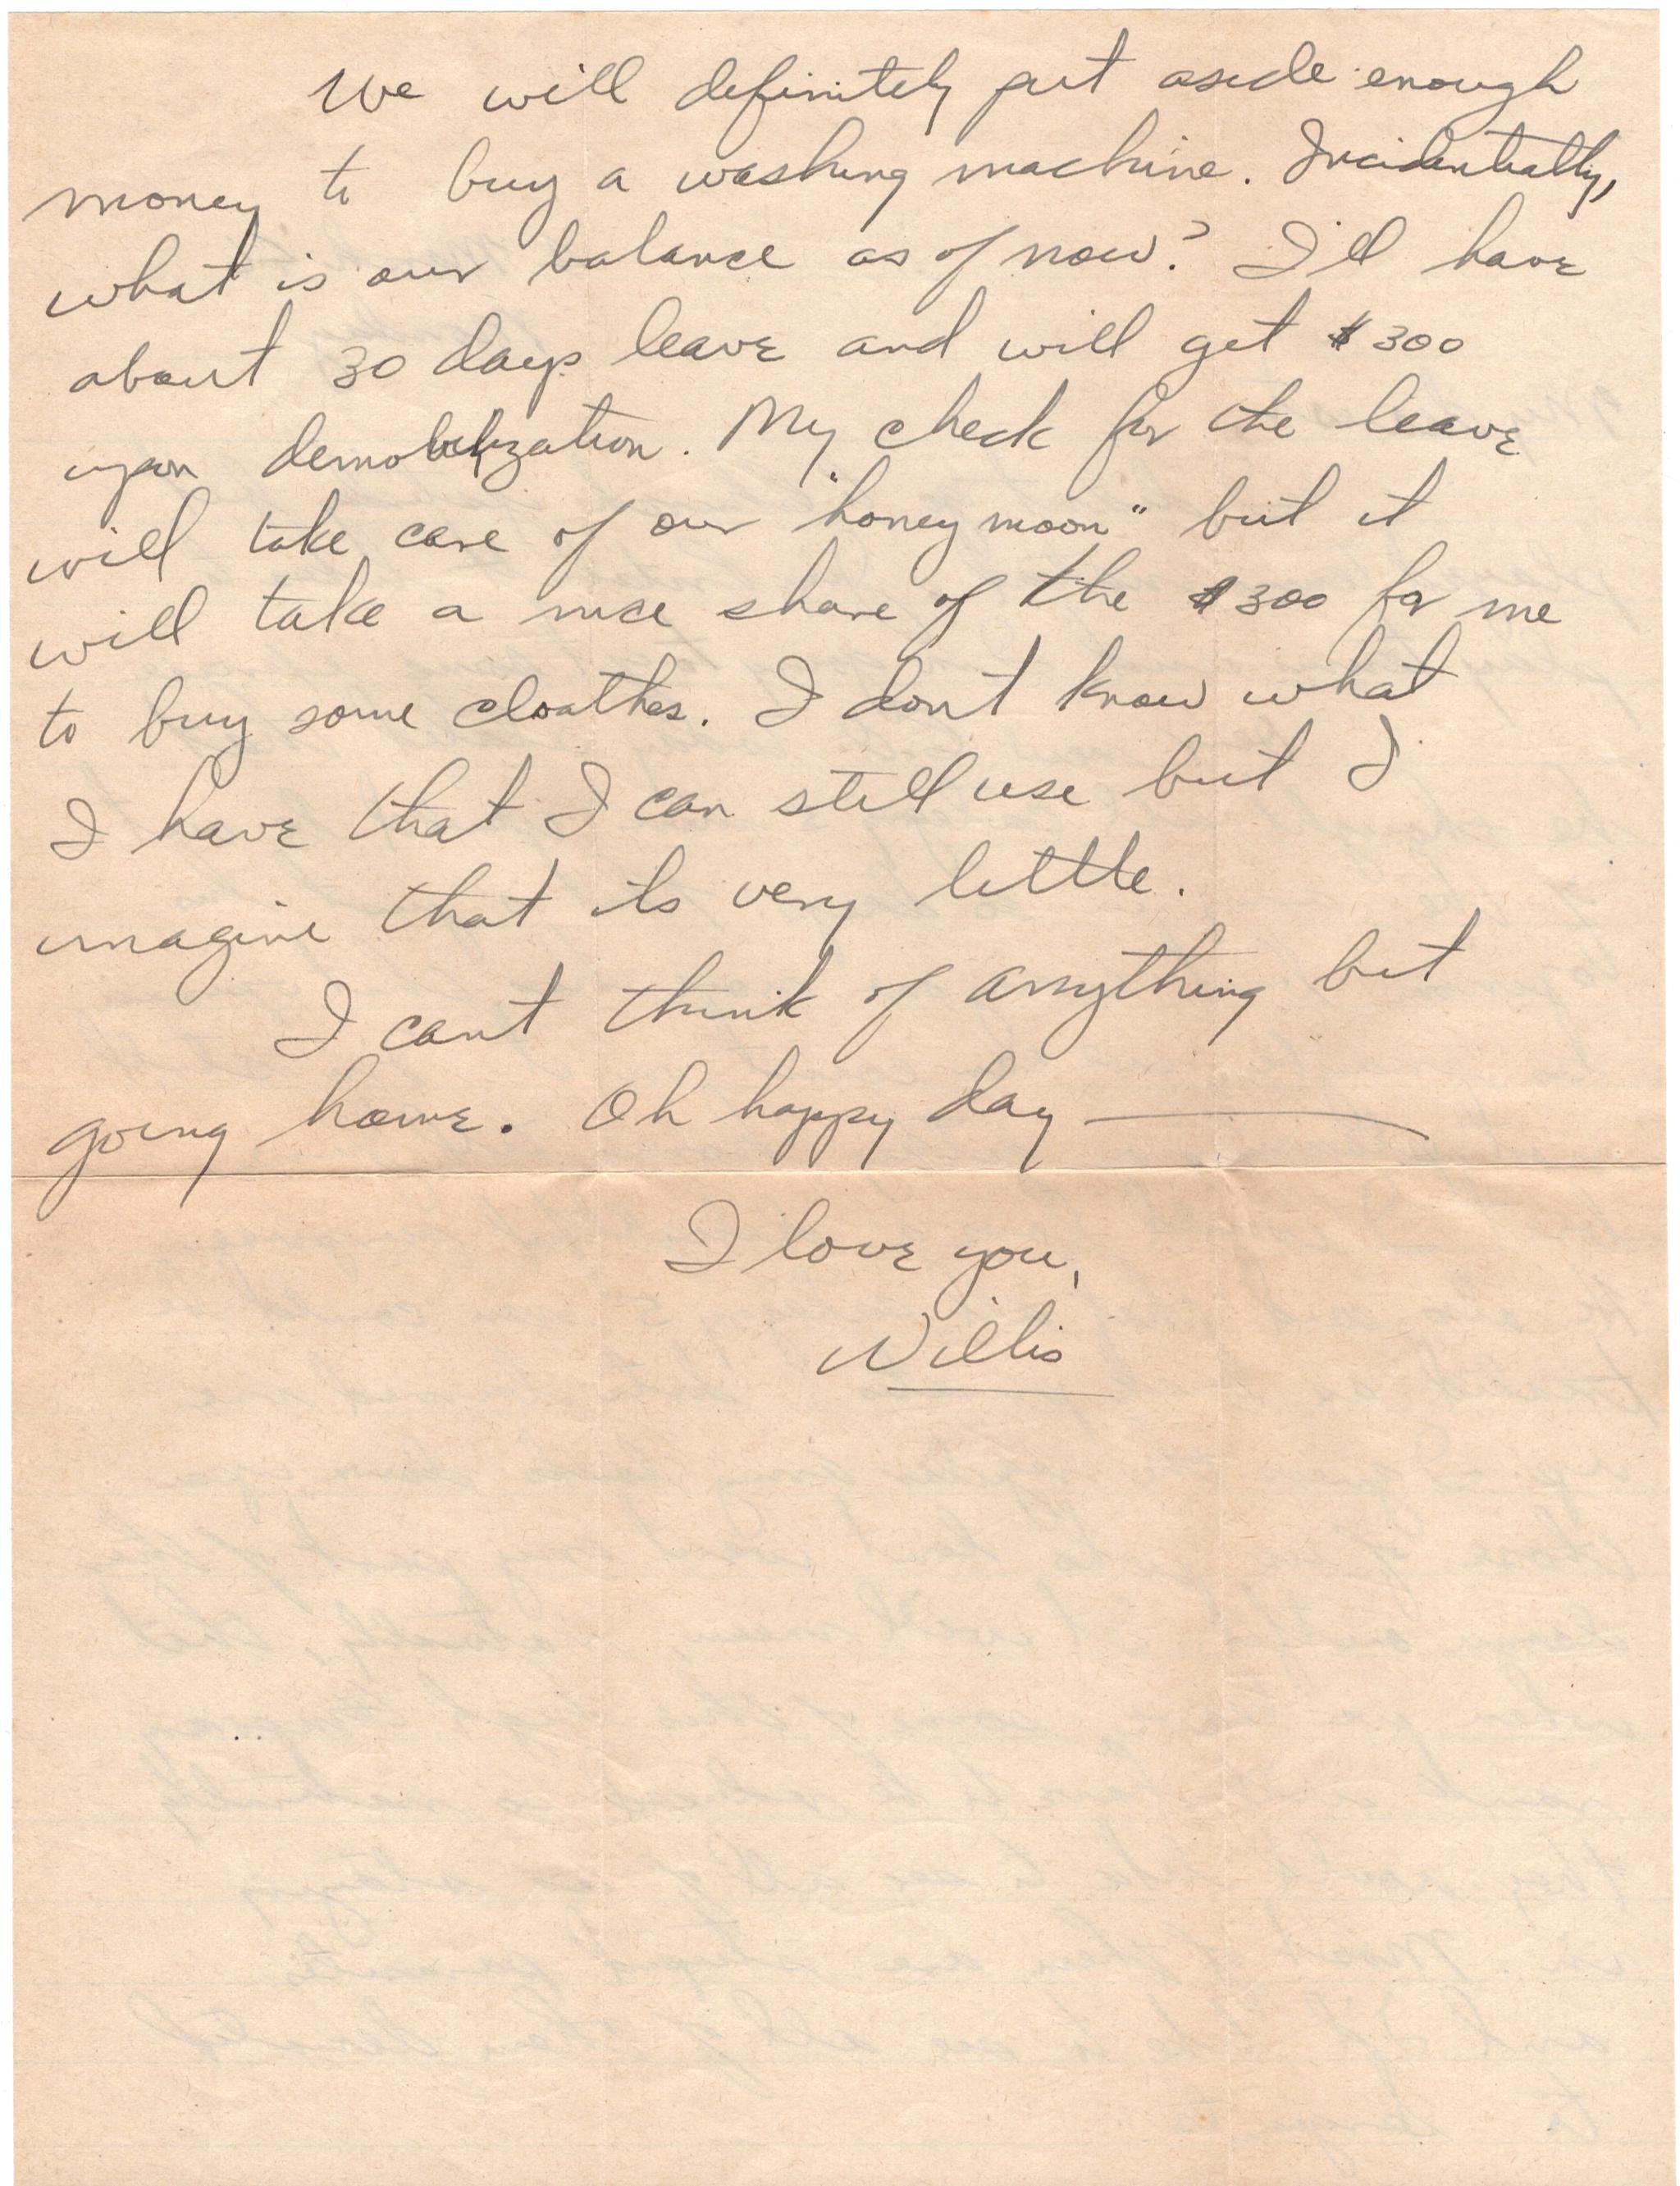 We will definitely put aside enough
money to buy a washing machine. Incidentally,
what is our balance as of now? I'll have
about 30 days leave and will get $300
upon demobilization. My check for the leave
will take care of our "honey moon" but it
will take a nice share of the $300 for me
to buy some cloathes. I don't know what
I have that I can still use but I
imagine that its very little.
I can't think of anything but
going home. Oh happy day —
I love you,
Willis